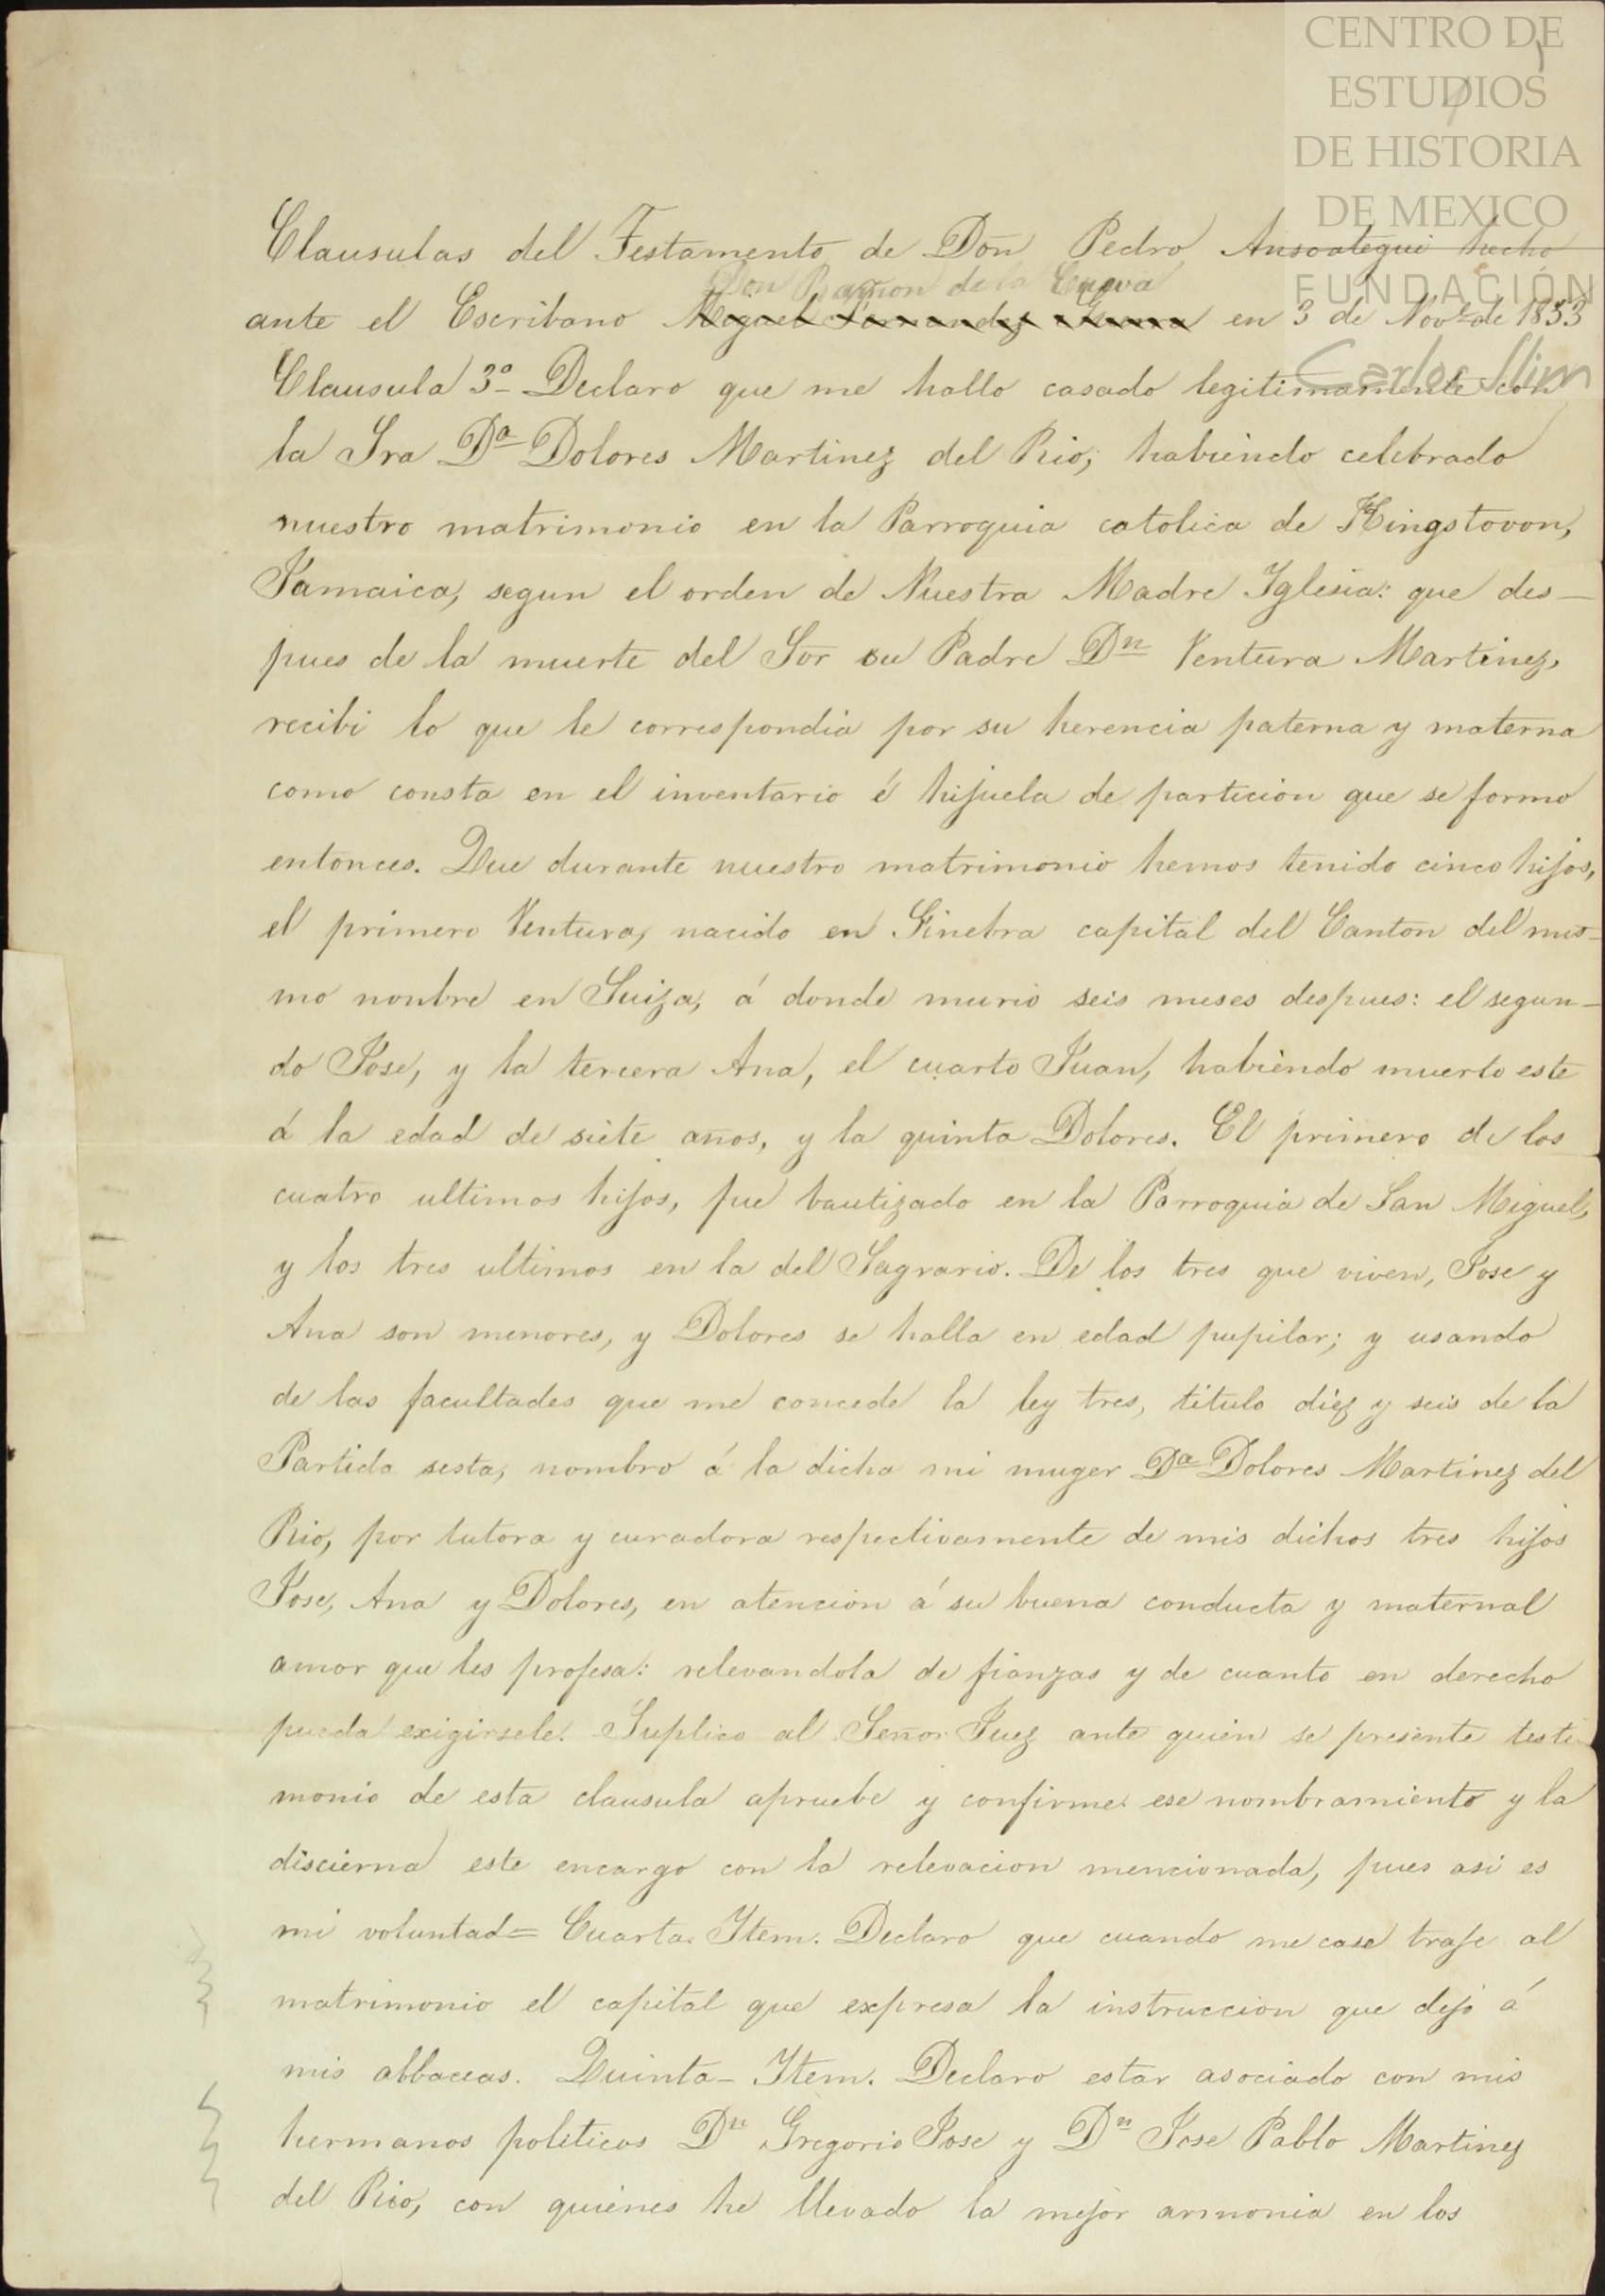 CENTRO DE
ESTUDIOS
DE HISTORIA
DE MEXICO
FUNDACIÓN
Carlos Slim
Clausulas del Testamento de Don Pedro Ansoategui hecho
Don Ramon de la Cueva
ante el Escribano en 3 de Nov.e de 1853
Clausula 3a Declaro que me hallo casado legitimamente con
la Sra Da Dolores Martinez del Rio, habiendo celebrado
nuestro matrimonio en la Parroquia catolica de Kingstown,
Jamaica, segun el orden de Nuestra Madre Iglesia: que des-
pues de la muerte del Sor su Padre Dn Ventura Martinez,
recibi lo que le correspondia por su herencia paterna y materna
como consta en el inventario é hijuela de particion que se formo
entonces. Que durante nuestro matrimonio hemos tenido cinco hijos,
el primero Ventura, nacido en Ginebra capital del Canton del mis-
mo nonbre en Suiza, á donde murió seis meses despues: el segun-
do Jose, y la tercera Ana, el cuarto Juan, habiendo muerto este
á la edad de siete años, y la quinta Dolores. El primero de los
cuatro ultimos hijos, fue bautizado en la Parroquia de San Miguel,
y los tres ultimos en la del Sagrario. De los tres que viven, Jose y
Ana son menores, y Dolores se halla en edad pupilar; y usando
de las facultades que me concede la ley tres, titulo diez y seis de la
Partida sesta, nombro á la dicha mi muger Da Dolores Martinez del
Rio, por tutora y curadora respectivamente de mis dichos tres hijos
Jose, Ana y Dolores, en atencion á su buena conducta y maternal
amor que les profesa: relevandola de fianzas y de cuanto en derecho
pueda exigirsele. Suplico al Señor Juez ante quien se presente testi-
monio de esta clausula apruebe y confirme ese nombramiento y la
discierna este encargo con la relevacion mencionada, pues asi es
mi voluntad= Cuarta. Item. Declaro que cuando me casé traje al
matrimonio el capital que expresa la instruccion que dejo á
mis albaceas. Quinta- Item. Declaro estar asociado con mis
hermanos politicos Dn Gregorio Jose y Dn Jose Pablo Martinez
del Rio, con quienes he llevado la mejor armonia en los